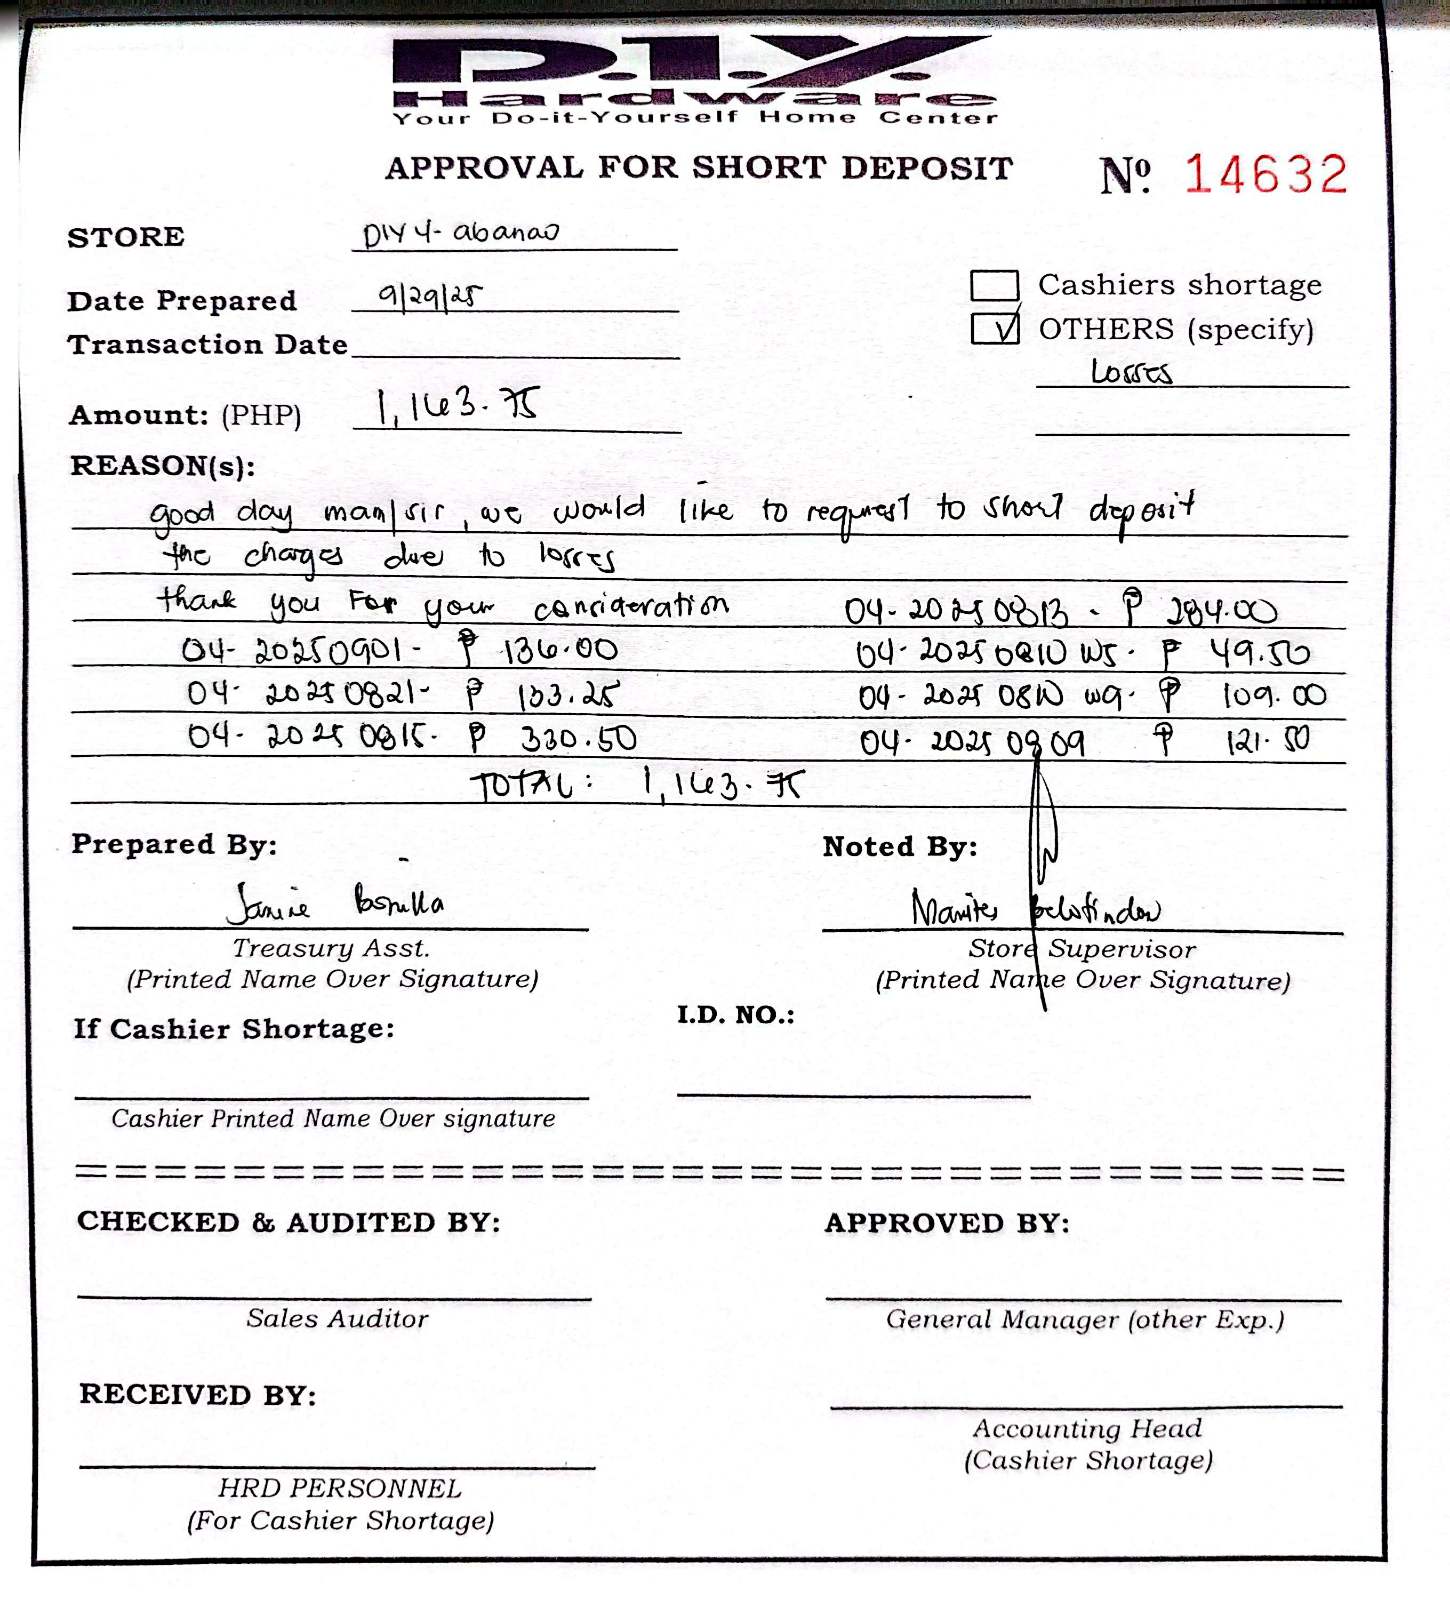 D.I.Y.
Hardware
Your Do-it-Yourself Home Center
APPROVAL FOR SHORT DEPOSIT Nº. 14632
STORE DIY 4- abanao
Date Prepared 9/29/25
Cashiers shortage
Transaction Date
OTHERS (specify)
Losses
Amount: (PHP) 1,163.75
REASON(s):
good day mam/sir, we would like to request to short deposit
the charges due to losses
thank you For your consideration 04-20250813 - ₱ 284.00
04-20250901- ₱ 136.00 04-20250810 WS - ₱ 49.50
04-20250821- ₱ 133.25 04-20250810 wg - ₱ 109.00
04-20250815- ₱ 330.50 04-20250809 ₱ 121.50
TOTAL: 1,163.75
Prepared By: Noted By:
Janine
Treasury Asst. Store Supervisor
(Printed Name Over Signature) (Printed Name Over Signature)
If Cashier Shortage: I.D. NO.:
Cashier Printed Name Over signature
CHECKED & AUDITED BY: APPROVED BY:
Sales Auditor General Manager (other Exp.)
RECEIVED BY:
Accounting Head
(Cashier Shortage)
HRD PERSONNEL
(For Cashier Shortage)